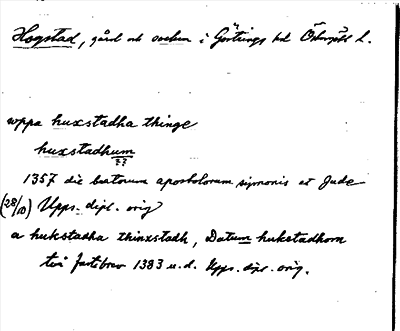 Hogstad, gård och socken i Göstrings hd Östergötl L.
uppa huxstadha thinge
huxstadhum
??
1357 die beatorum apostolorum symonis et Jude
(28/10) Upps. dipl. orig
a hukstadha thinxstadh, Datum hukstadhom
två fastebrev 1383 u.d. Upps. dipl. orig.